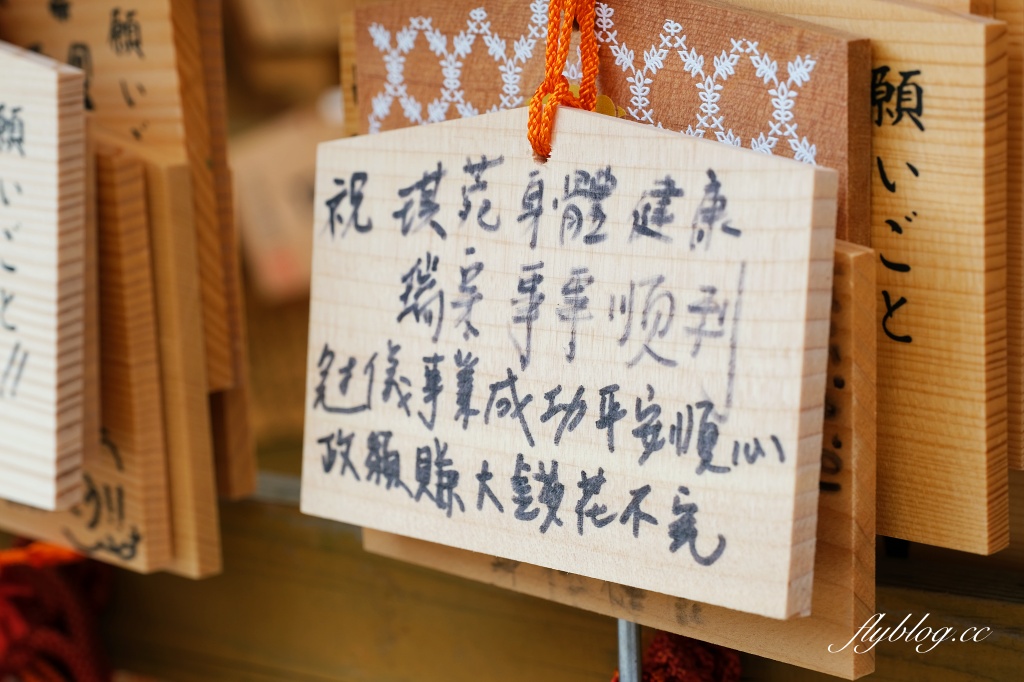 祝 琪苑身體健康
瑞 事事順利
儀事業成功平安順心
政穎賺大錢花不完
願いごと
願いごと!!
願い
flyblog.cc